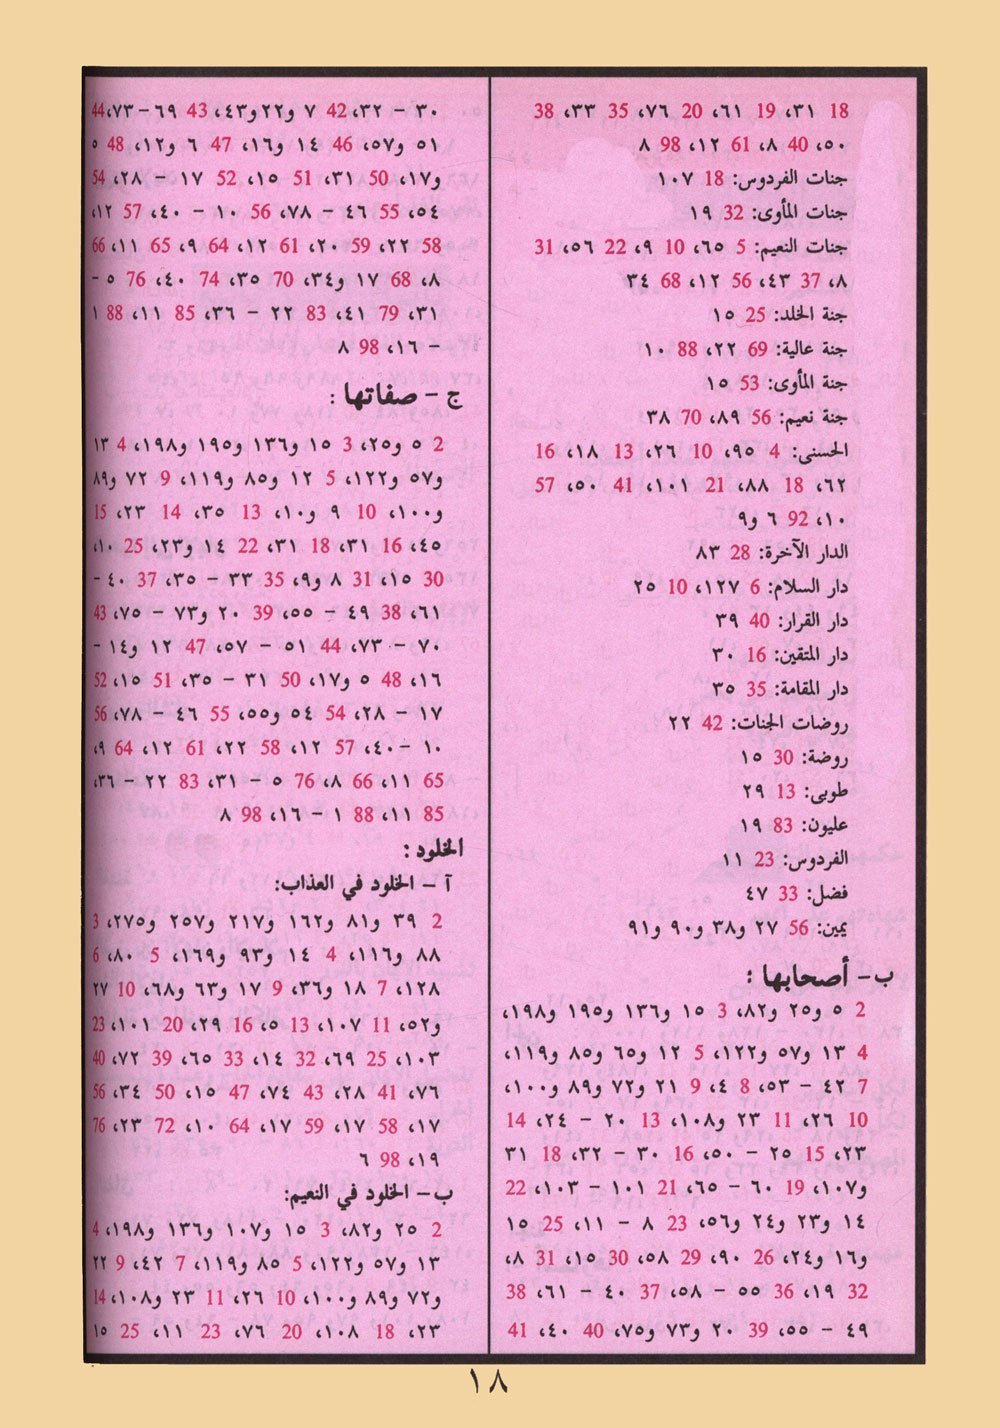 18 ٣١، 19 ٦١، 20 ٧٦، 35 ٣٣، 38
٥٠، 40 ٨، 61 ١٢، 98 ٨
جنات الفردوس: 18 ١٠٧
جنات المأوى: 32 ١٩
جنات النعيم: 5 ٦٥، 10 ٩، 22 ٥٦، 31
٨، 37 ٤٣، 56 ١٢، 68 ٣٤
جنة الخلد: 25 ١٥
جنة عالية: 69 ٢٢، 88 ١٠
جنة المأوى: 53 ١٥
جنة نعيم: 56 ٨٩، 70 ٣٨
الحسنى: 4 ٩٥، 10 ٢٦، 13 ١٨، 16
٦٢، 18 ٨٨، 21 ١٠١، 41 ٥٠، 57
١٠، 92 ٦ و٩
الدار الآخرة: 28 ٨٣
دار السلام: 6 ١٢٧، 10 ٢٥
دار القرار: 40 ٣٩
دار المتقين: 16 ٣٠
دار المقامة: 35 ٣٥
روضات الجنات: 42 ٢٢
روضة: 30 ١٥
طوبى: 13 ٢٩
عليون: 83 ١٩
الفردوس: 23 ١١
فضل: 33 ٤٧
يمين: 56 ٢٧ و٣٨ و٩٠ و٩١
ب – أصحابها :
2 ٥ و٢٥ و٨٢، 3 ١٥ و١٣٦ و١٩٥ و١٩٨،
4 ١٣ و٥٧ و١٢٢، 5 ١٢ و٦٥ و٨٥ و١١٩،
7 ٤٢ – ٥٣، 8 ٤، 9 ٢١ و٧٢ و٨٩ و١٠٠،
10 ٢٦، 11 ٢٣ و١٠٨، 13 ٢٠ – ٢٤، 14
٢٣، 15 ٢٥ – ٥٠، 16 ٣٠ – ٣٢، 18 ٣١
و١٠٧، 19 ٦٠ – ٦٥، 21 ١٠١ – ١٠٣، 22
١٤ و٢٣ و٢٤ و٥٦، 23 ٨ – ١١، 25 ١٥
و١٦ و٢٤، 26 ٩٠، 29 ٥٨، 30 ١٥، 31 ٨،
32 ١٩، 36 ٥٥ – ٥٨، 37 ٤٠ – ٦١، 38
٤٩ – ٥٥، 39 ٢٠ و٧٣ و٧٥، 40 ٤٠، 41
٣٠ – ٣٢، 42 ٧ و٢٢ و٤٣، 43 ٦٩ – ٧٣، 44
٥١ و٥٧، 46 ١٤ و١٦، 47 ٦ و١٢، 48 ٥
و١٧، 50 ٣١، 51 ١٥، 52 ١٧ – ٢٨، 54
٥٤، 55 ٤٦ – ٧٨، 56 ١٠ – ٤٠، 57 ١٢،
58 ٢٢، 59 ٢٠، 61 ١٢، 64 ٩، 65 ١١، 66
٨، 68 ١٧ و٣٤، 70 ٣٥، 74 ٤٠، 76 ٥ –
٣١، 79 ٤١، 83 ٢٢ – ٣٦، 85 ١١، 88 ١
– ١٦، 98 ٨
ج – صفاتها :
2 ٥ و٢٥، 3 ١٥ و١٣٦ و١٩٥ و١٩٨، 4 ١٣
و٥٧ و١٢٢، 5 ١٢ و٨٥ و١١٩، 9 ٧٢ و٨٩
و١٠٠، 10 ٩ و١٠، 13 ٣٥، 14 ٢٣، 15
٤٥، 16 ٣١، 18 ٣١، 22 ١٤ و٢٣، 25 ١٠،
30 ١٥، 31 ٨ و٩، 35 ٣٣ – ٣٥، 37 ٤٠ –
٦١، 38 ٤٩ – ٥٥، 39 ٢٠ و٧٣ – ٧٥، 43
٧٠ – ٧٣، 44 ٥١ – ٥٧، 47 ١٢ و١٤ –
١٦، 48 ٥ و١٧، 50 ٣١ – ٣٥، 51 ١٥، 52
١٧ – ٢٨، 54 ٥٤ و٥٥، 55 ٤٦ – ٧٨، 56
١٠ – ٤٠، 57 ١٢، 58 ٢٢، 61 ١٢، 64 ٩،
65 ١١، 66 ٨، 76 ٥ – ٣١، 83 ٢٢ – ٣٦،
85 ١١، 88 ١ – ١٦، 98 ٨
الخلود :
آ – الخلود في العذاب:
2 ٣٩ و٨١ و١٦٢ و٢١٧ و٢٥٧ و٢٧٥، 3
٨٨ و١١٦، 4 ١٤ و٩٣ و١٦٩، 5 ٨٠، 6
١٢٨، 7 ١٨ و٣٦، 9 ١٧ و٦٣ و٦٨، 10 ٢٧
و٥٢، 11 ١٠٧، 13 ٥، 16 ٢٩، 20 ١٠١، 23
١٠٣، 25 ٦٩، 32 ١٤، 33 ٦٥، 39 ٧٢، 40
٧٦، 41 ٢٨، 43 ٧٤، 47 ١٥، 50 ٣٤، 56
١٧، 58 ١٧، 59 ١٧، 64 ١٠، 72 ٢٣، 76
١٩، 98 ٦
ب – الخلود في النعيم:
2 ٢٥ و٨٢، 3 ١٥ و١٠٧ و١٣٦ و١٩٨، 4
١٣ و٥٧ و١٢٢، 5 ٨٥ و١١٩، 7 ٤٢، 9 ٢٢
و٧٢ و٨٩ و١٠٠، 10 ٢٦، 11 ٢٣ و١٠٨، 14
٢٣، 18 ١٠٨، 20 ٧٦، 23 ١١، 25 ١٥
١٨